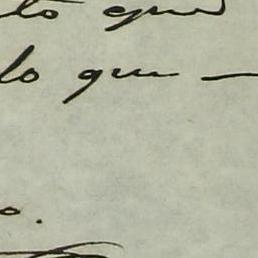 to que
lo que —
o.